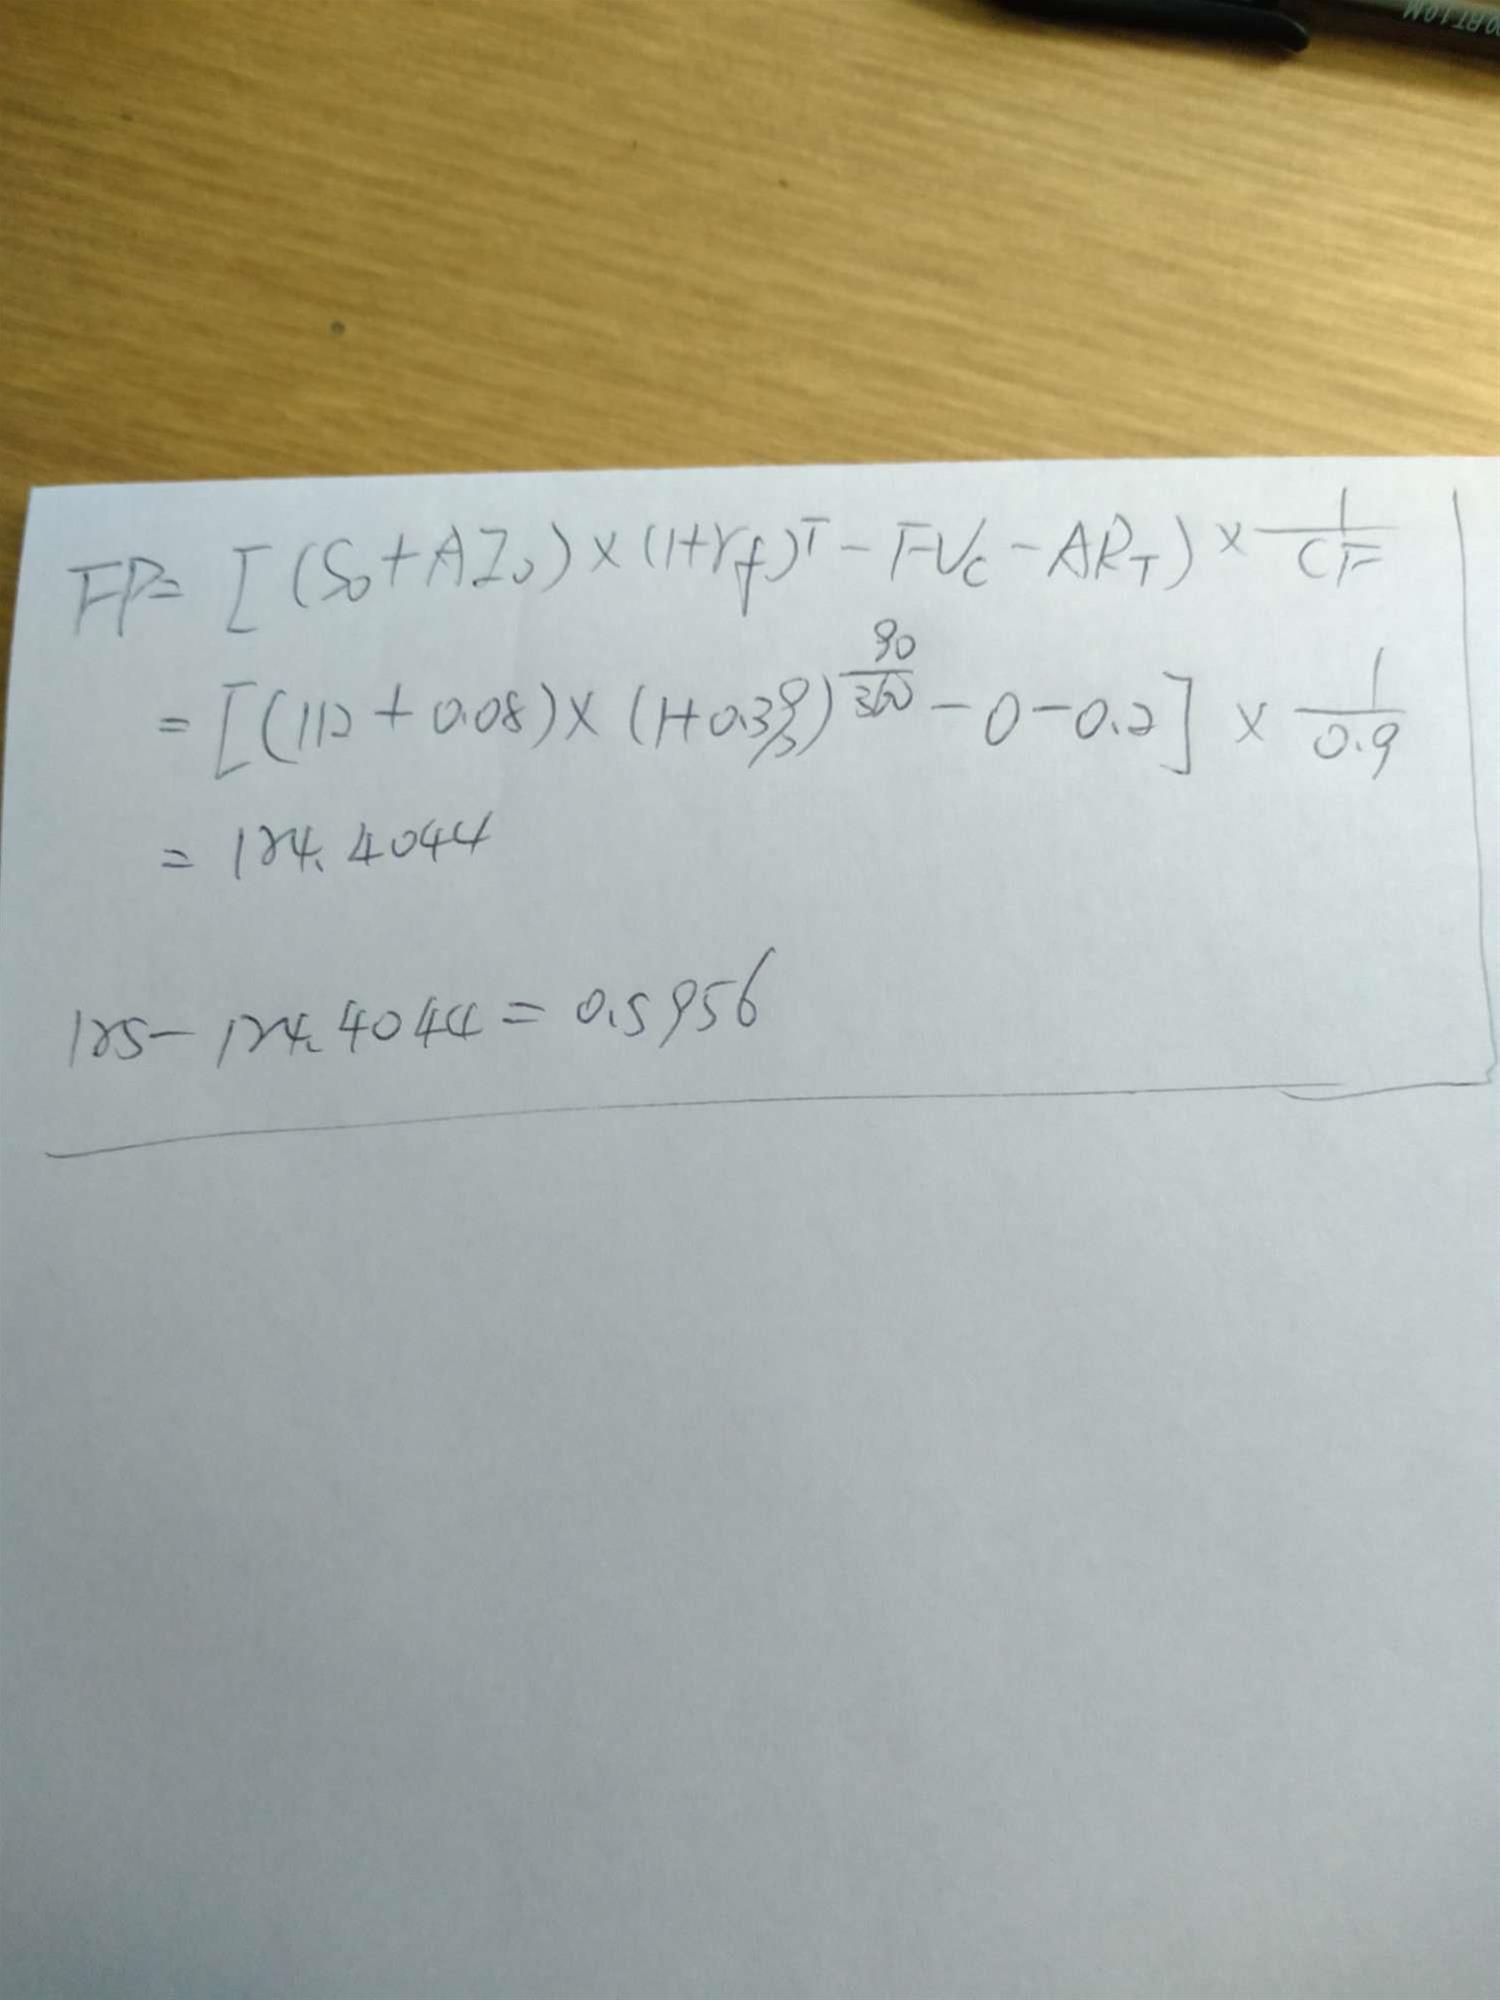 PORT 1.0 M
FP= [(S₀+AI₀)×(1+rf)ᵀ-FVc-AR_T)×1/CF
=[(112+0.08)×(1+0.3%)^(90/360)-0-0.2]×1/0.9
=124.4044
125-124.4044=0.5956